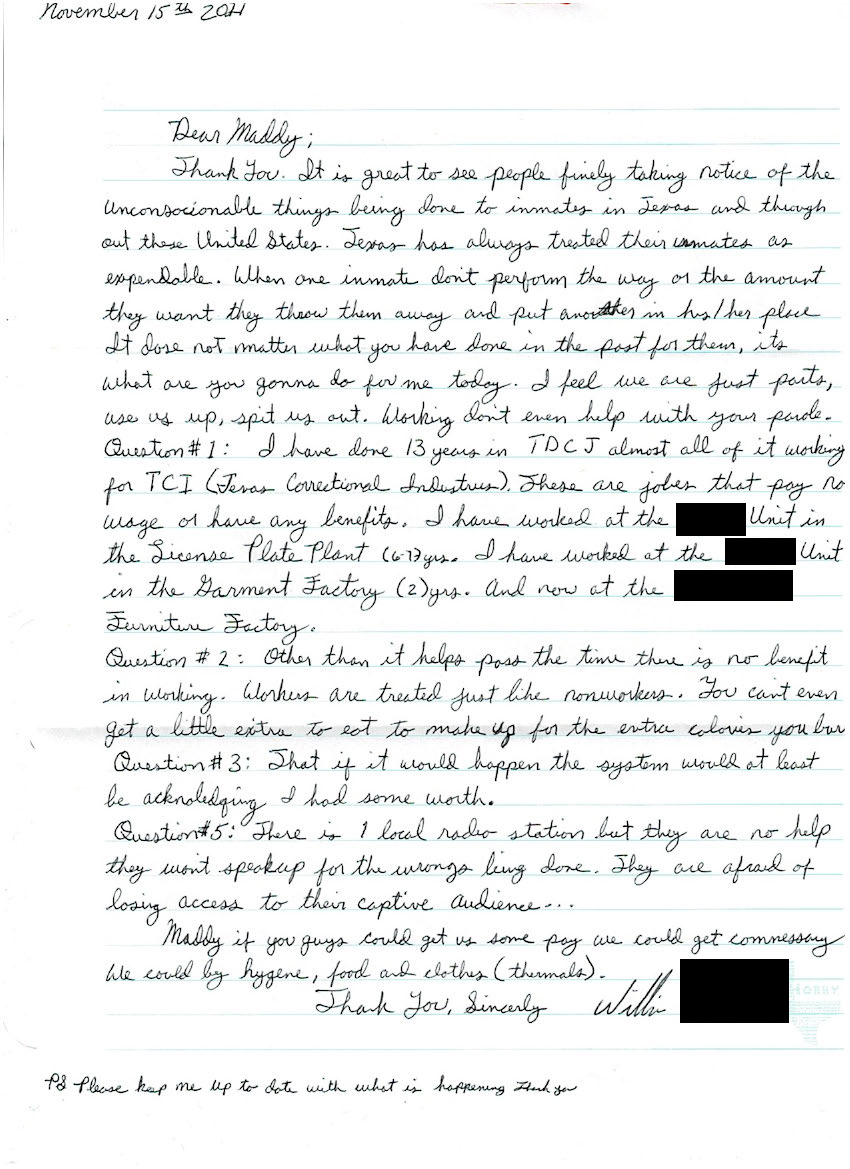 November 15th 2021
Dear Maddy;
Thank You. It is great to see people finely taking notice of the
unconsocionable things being done to inmates in Texas and through
out these United States. Texas has always treated their inmates as
expendable. When one inmate don't perform the way or the amount
they want they throw them away and put another in his/her place
It dose not matter what you have done in the past for them, its
what are you gonna do for me today. I feel we are just parts,
use us up, spit us out. Working don't even help with your parole.
Question #1: I have done 13 years in TDCJ almost all of it working
for TCI (Texas Correctional Industries). These are jobes that pay no
wage or have any benefits. I have worked at the Unit in
the License Plate Plant (6-7)yrs. I have worked at the Unit
in the Garment Factory (2)yrs. And now at the
Furniture Factory.
Question #2: Other than it helps pass the time there is no benefit
in working. Workers are treated just like nonworkers. You can't even
get a little extra to eat to make up for the extra calories you bur
Question #3: That if it would happen the system would at least
be acknoledging I had some worth.
Question#5: There is 1 local radio station but they are no help
they won't speakup for the wrongs being done. They are afraid of
losing access to their captive audience...
Maddy if you guys could get us some pay we could get commessary
We could by hygene, food and clothes (thermals).
Thank You, Sincerly Willie
HOBBY
PS Please keep me up to date with what is happening Thank you